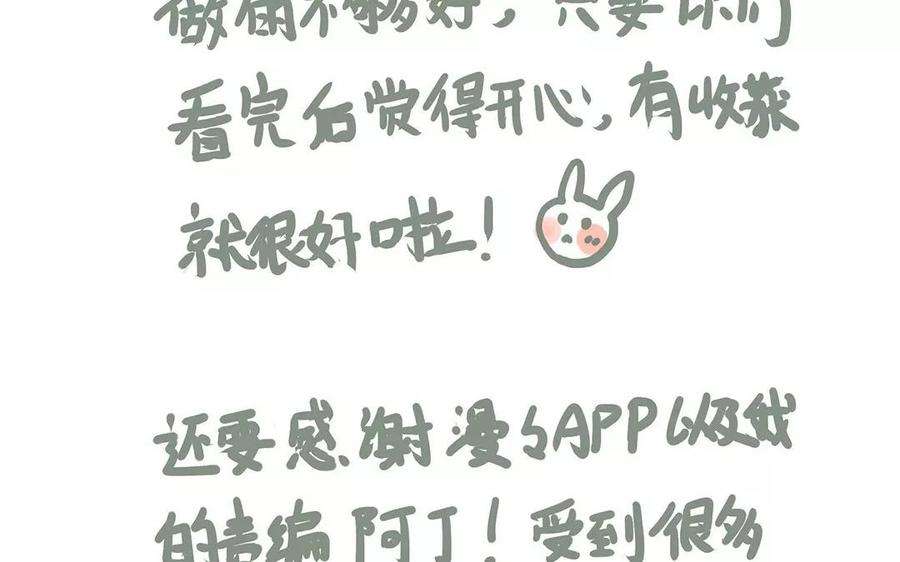 做的不够好，只要你们
看完后觉得开心，有收获
就很好啦！
还要感谢漫々APP以及我
的责编阿丁！受到很多